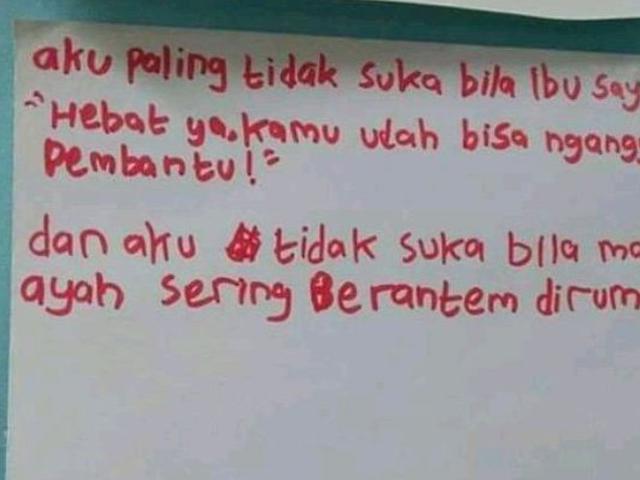 aku paling tidak suka bila Ibu say
"Hebat ya, kamu udah bisa ngang
Pembantu!"
dan aku tidak suka bila ma
ayah sering Berantem dirum